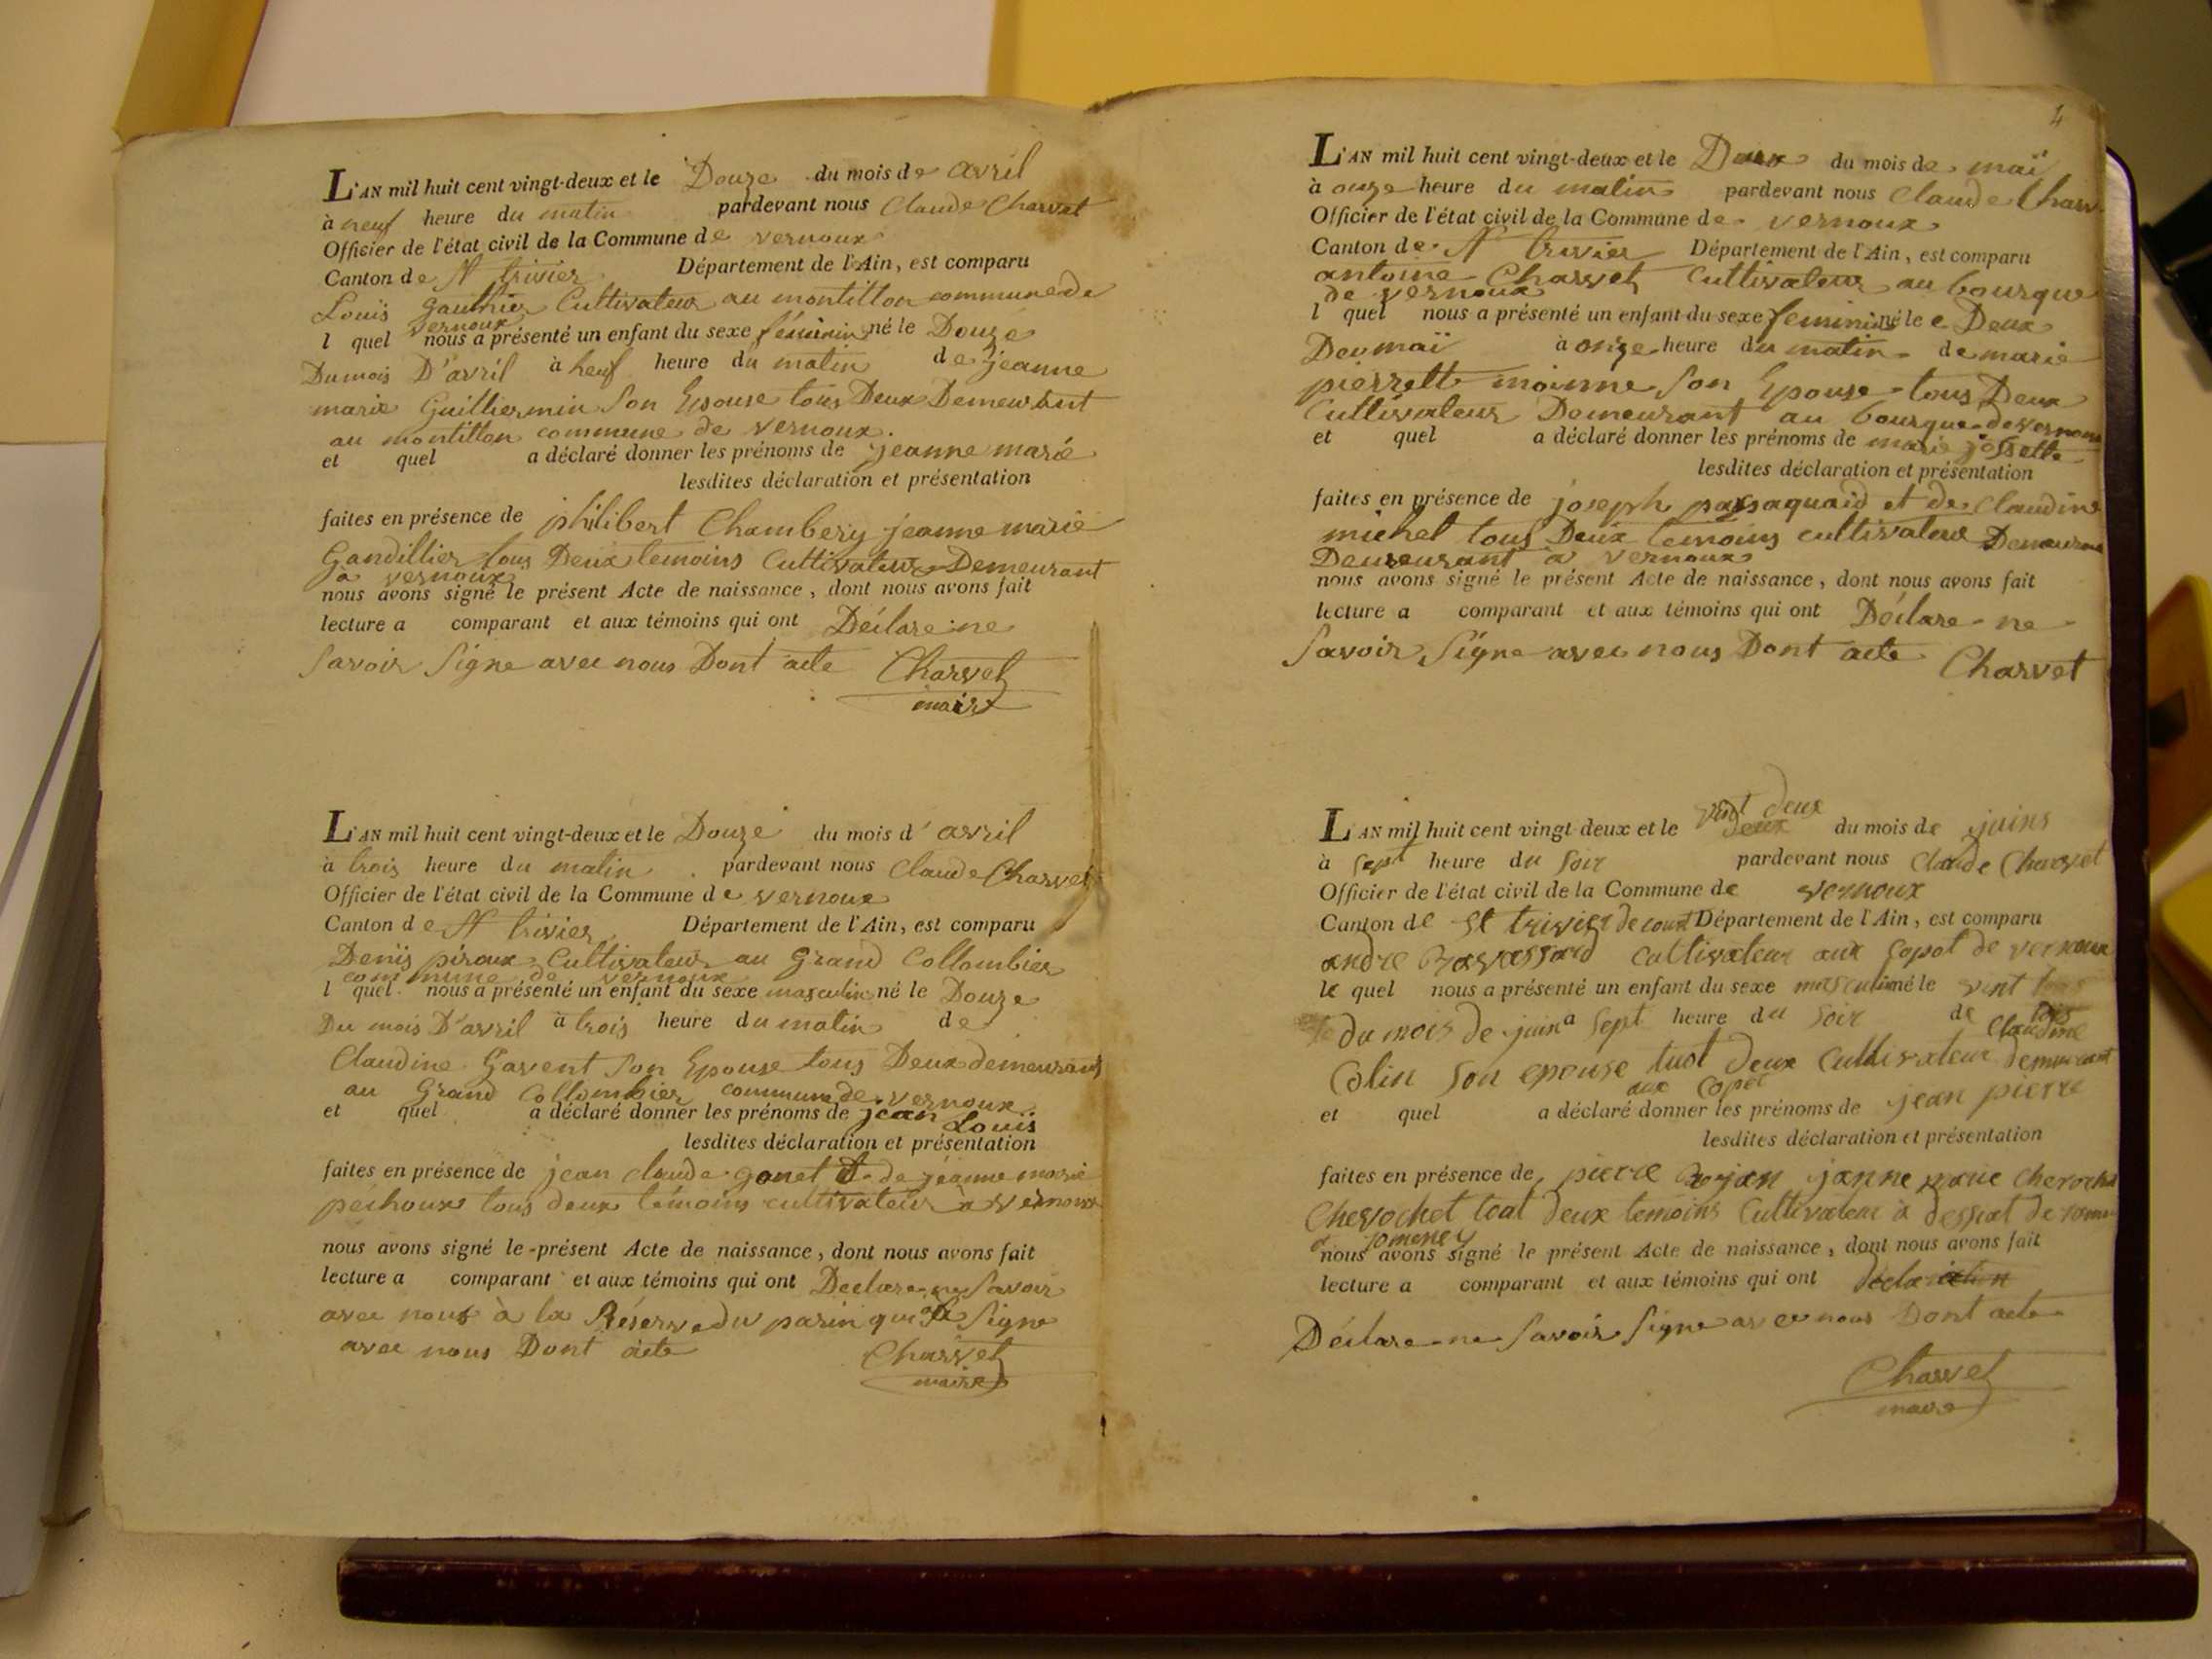 L'AN mil huit cent vingt-deux et le Douze du mois de avril
à neuf heure du matin pardevant nous Claude Charvet
Officier de l'état civil de la Commune de vernoux
Canton de St trivier Département de l'Ain, est comparu
Louis Gauthier Cultivateur au montillon commune de
vernoux
l quel nous a présenté un enfant du sexe féminin né le Douze
Du mois D'avril à neuf heure du matin de jeanne
marie Guilliermin Son Epouse tous Deux Demeurant
au montillon commune de vernoux.
et quel a déclaré donner les prénoms de jeanne marie
lesdites déclaration et présentation
faites en présence de philibert Chambery jeanne marie
Gandillier tous Deux temoins Cultivateur Demeurant
à vernoux
nous avons signé le présent Acte de naissance, dont nous avons fait
lecture a comparant et aux témoins qui ont Déclare ne
Savoir Signe avec nous Dont acte Charvet
maire
L'AN mil huit cent vingt-deux et le Douze du mois d' avril
à trois heure du matin pardevant nous Claude Charvet
Officier de l'état civil de la Commune de vernoux
Canton de St trivier Département de l'Ain, est comparu
Denis piroux Cultivateur au Grand Collombier
commune de vernoux
l quel nous a présenté un enfant du sexe masculin né le Douze
Du mois D'avril à trois heure du matin de
Claudine Gavent Son Epouse tous Deux demeurant
au Grand Collombier commune de vernoux
et quel a déclaré donner les prénoms de jean
Louis
lesdites déclaration et présentation
faites en présence de jean claude gonet et de jeanne marie
pechoux tous deux témoins cultivateur à vernoux
nous avons signé le présent Acte de naissance, dont nous avons fait
lecture a comparant et aux témoins qui ont Declare ne Savoir
avec nous à la Réserve du parin qui a Signe
avec nous Dont acte Charvet
maire
4
L'AN mil huit cent vingt-deux et le Deux du mois de maï
à onze heure du matin pardevant nous Claude Charv
Officier de l'état civil de la Commune de vernoux
Canton de St trivier Département de l'Ain, est comparu
antoine Charvet Cultivateur au bourque
de vernoux
l quel nous a présenté un enfant du sexe feminin né le Deux
De maï à onze heure du matin de marie
pierrette moinne Son Epouse tous Deux
Cultivateur Demeurant au bourque de vernoux
et quel a déclaré donner les prénoms de marie josette
lesdites déclaration et présentation
faites en présence de joseph et de Claudine
michel tous Deux temoins cultivateur Demeurant
Demeurant à vernoux
nous avons signé le présent Acte de naissance, dont nous avons fait
lecture a comparant et aux témoins qui ont Déclare ne
Savoir Signe avec nous Dont acte Charvet
vint deux
L'AN mil huit cent vingt-deux et le deux du mois de juins
à sept heure du soir pardevant nous Claude Charvet
Officier de l'état civil de la Commune de vernoux
Canton de St trivier de court Département de l'Ain, est comparu
andre cultivateur aux sopot de vernoux
le quel nous a présenté un enfant du sexe masculin né le vint
du mois de juin a sept heure du soir de Claudine
Colin son epouse tuot deux Cultivateur demeurant
aux Copet
et quel a déclaré donner les prénoms de jean pierre
lesdites déclaration et présentation
faites en présence de pierre janne marie
Chevochet tout deux temoins Cultivateur a de
romeney
nous avons signé le présent Acte de naissance, dont nous avons fait
lecture a comparant et aux témoins qui ont
Déclare ne Savoir Signe avec nous Dont acte
Charvet
maire